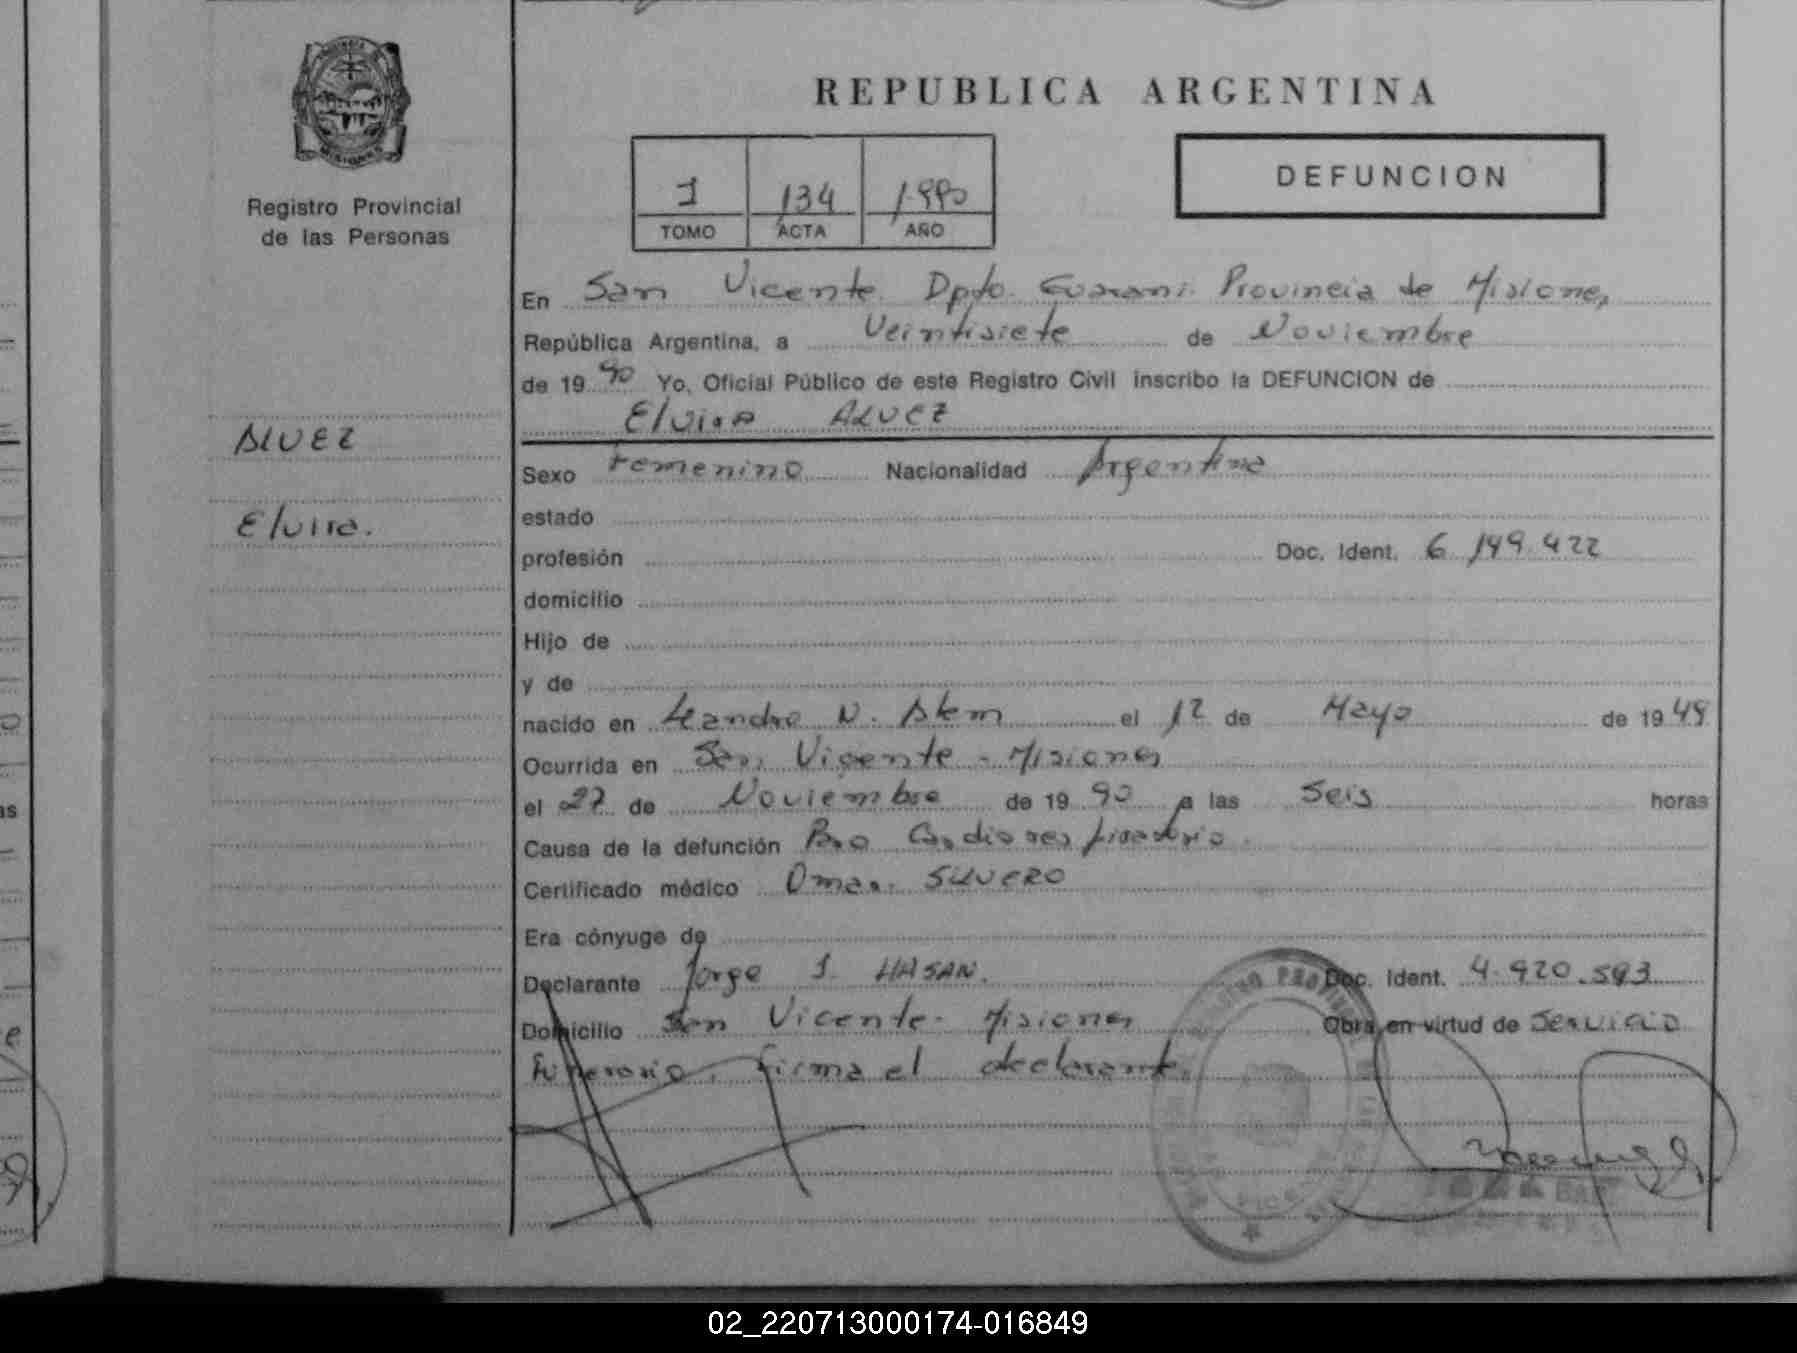 REPUBLICA ARGENTINA
Registro Provincial
de las Personas
1 134 1.990
TOMO ACTA AÑO
DEFUNCION
En San Vicente Dpto. Guarani Provincia de Misiones,
República Argentina, a Veintisiete de Noviembre
de 19 90 Yo, Oficial Público de este Registro Civil inscribo la DEFUNCION de
Elvira ALVEZ
ALVEZ
Elvira.
Sexo Femenino Nacionalidad Argentina
estado
profesión Doc. Ident. 6.149.422
domicilio
Hijo de
y de
nacido en Leandro N. Alem el 12 de Mayo de 19 49
Ocurrida en San Vicente - Misiones
el 27 de Noviembre de 19 90 a las Seis horas
Causa de la defunción Paro Cardiorespiratorio.
Certificado médico Omar SILVERO
Era cónyuge de
Declarante Jorge I. HASAN. Doc. Ident. 4.920.593
Domicilio San Vicente - Misiones Obra en virtud de Servicio
Funerario, firma el declarante.
02_220713000174-016849